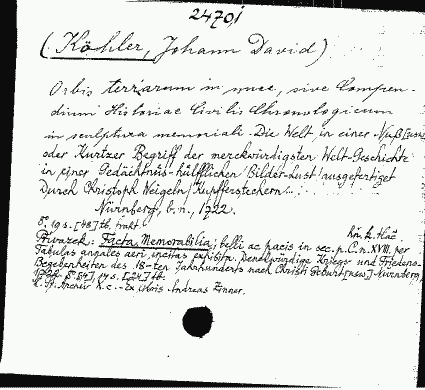 24701
(Köhler, Johann David)
Orbis terrarum in nuce, sive Compen-
dium Historiae Civilis Chronologicum
in sculptura memoriali. Die Welt, in einer Nuß
oder Kurtzer Begriff der merckwürdigsten Welt-Geschichte
in einer Gedächtnüs-hülfflichen Bilder-Lust ausgefertiget
Durch Christoph Weigeln, Kupfferstechern...
Nürnberg, b.n., 1722.
8°. 19 s. [48] tb.
Přivázek: Facta Memorabilia, belli ac pacis in sec. p. C. n. XVIII. per
Tabulas annales aeri incisas exhibita. Denckwürdige Kriegs- und Friedens-
Begebenheiten des 18-ten Jahrhunderts nach Christi Geburt [usw.] Nürnberg,
tb.
Andreas Zinner.